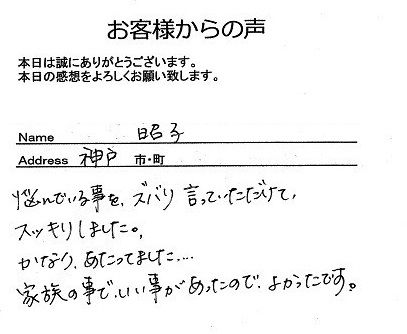 お客様からの声
本日は誠にありがとうございます。
本日の感想をよろしくお願い致します。
Name 昭子
Address 神戸 市・町
悩んでいる事を、ズバリ言っていただけて、
スッキリしました。
かなり、あたってました....
家族の事で、いい事があったので、よかったです。